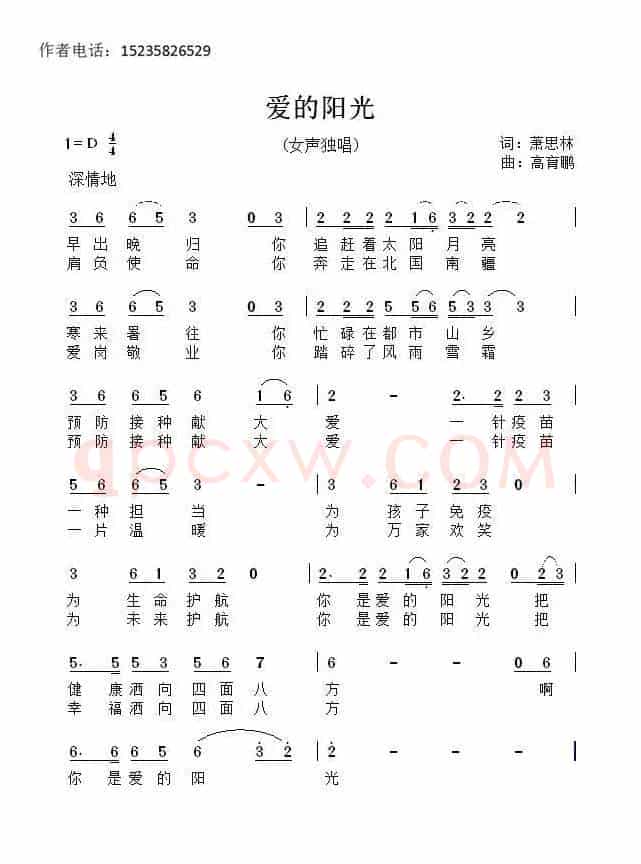 作者电话：15235826529
爱的阳光
1=D 4/4
(女声独唱)
词：萧思林
曲：高育鹏
深情地
3 6 6 5 3 0 3 | 2 2 2 2 1 6 3 2 2 2 |
早出晚归 你 追赶着太阳月亮
肩负使命 你 奔走在北国南疆
3 6 6 5 3 0 3 | 2 2 2 5 5 5 5 3 3 3 |
寒来暑往 你 忙碌在都市山乡
爱岗敬业 你 踏碎了风雨雪霜
3 6 6 5 6 1 6 | 2 - 2. 2 2 2 3 |
预防接种献大 爱 一针疫苗
预防接种献大 爱 一针疫苗
5 6 6 5 3 - | 3 6 1 2 3 0 |
一种担当 为 孩子免疫
一片温暖 为 万家欢笑
3 6 1 3 2 0 | 2. 2 2 1 6 3 2 2 0 2 3 |
为 生命护航 你是爱的阳光 把
为 未来护航 你是爱的阳光 把
5. 5 5 3 5 6 7 | 6 - - 0 6 |
健康洒向四面八 方 啊
幸福洒向四面八 方
6. 6 6 5 6 3 2 | 2 - - - |
你是爱的阳 光
qpcxw.com